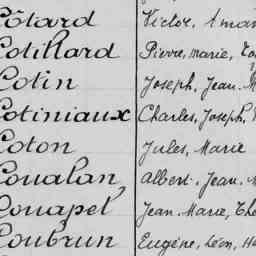 Côtard Victor, Amar
Cotillard Pierre, marie,
Cotin Joseph, Jean. M
Cotiniaux Charles, Joseph,
Coton Jules, Marie
Coualan, Albert. Jean.
Couapel Jean. Marie, Thé
Coubrun Eugène, Léon, He